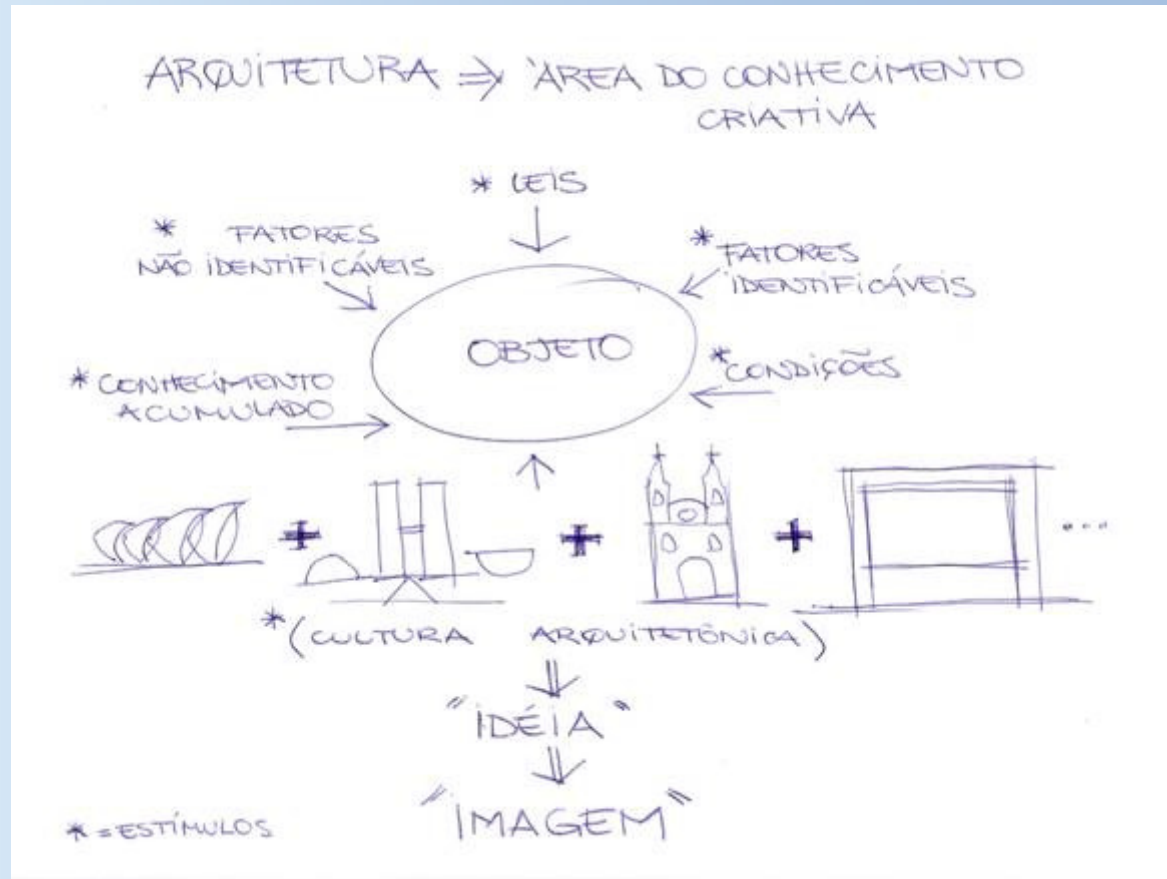 ARQUITETURA ⇒ ÁREA DO CONHECIMENTO
CRIATIVA
* LEIS
* FATORES
NÃO IDENTIFICÁVEIS
* FATORES
IDENTIFICÁVEIS
OBJETO
* CONDIÇÕES
* CONHECIMENTO
ACUMULADO
+ + + ...
* (CULTURA ARQUITETÔNICA)
"IDÉIA"
"IMAGEM"
* = ESTÍMULOS